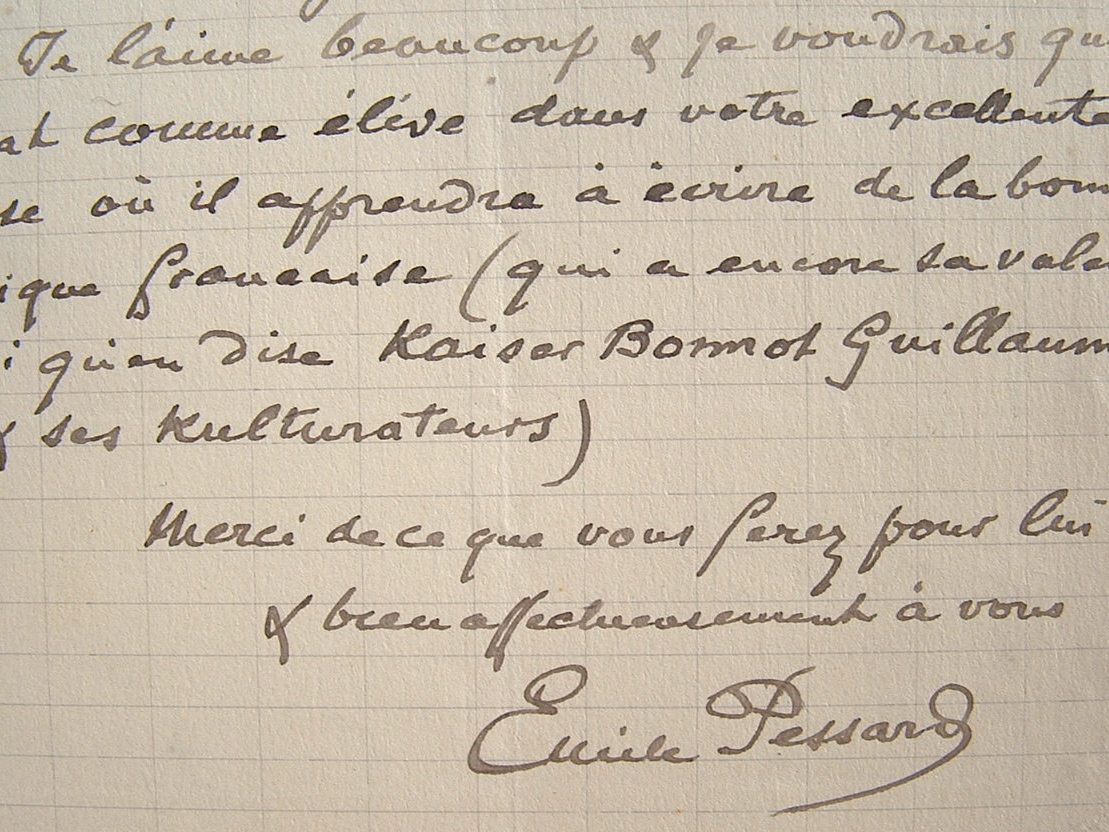 Je l'aime beaucoup & je voudrais qu
at comme élève dans votre excellente
se où il apprendra à écrire de la bonn
ique française (qui a encore sa vale
i qu'en dise Kaiser Bonnot Guillaum
& ses Kulturateurs)
Merci de ce que vous ferez pour lui
& bien affectueusement à vous
Emile Pessard